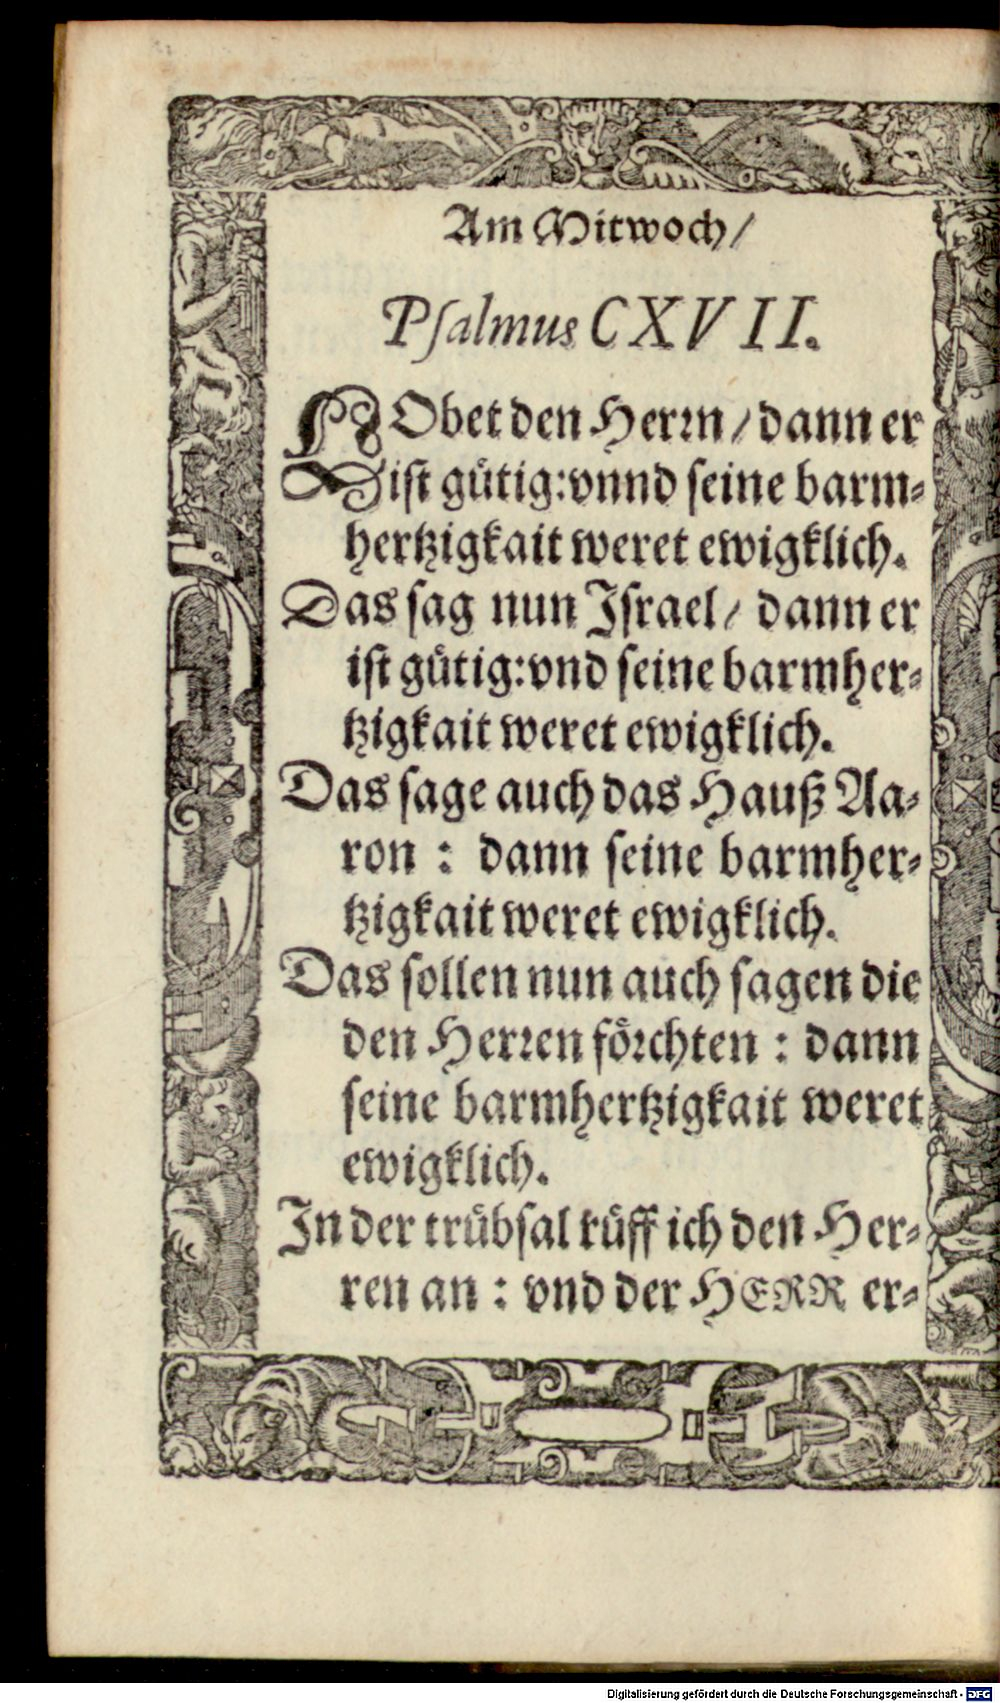 Am Mitwoch/
Psalmus CXVII.
LObet den Herrn/ dann er
ist gütig: vnnd seine barm-
hertzigkait weret ewigklich.
Das sag nun Israel/ dann er
ist gütig: vnd seine barmher-
tzigkait weret ewigklich.
Das sage auch das Hauß Aa-
ron : dann seine barmher-
tzigkait weret ewigklich.
Das sollen nun auch sagen die
den Herren förchten : dann
seine barmhertzigkait weret
ewigklich.
In der trübsal rüff ich den Her-
ren an : vnd der HERR er-
Digitalisierung gefördert durch die Deutsche Forschungsgemeinschaft - DFG